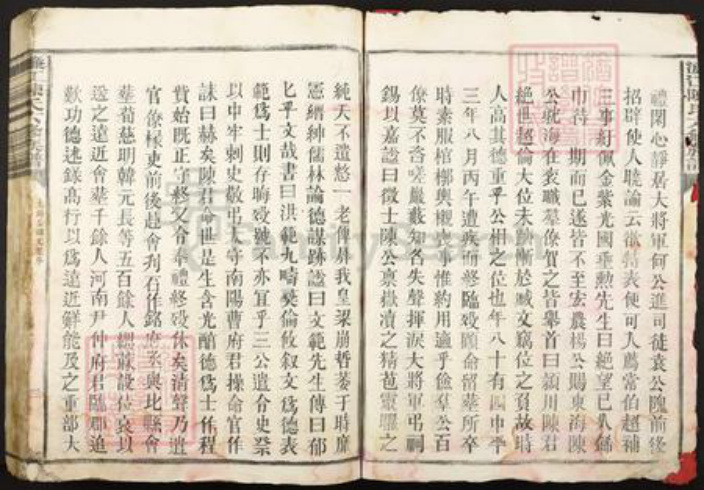 禮閑心靜居大將軍何公進司徒袁公隗前後
招辟使人曉諭云欲特表便可入薦當伯超補
三事紆佩金紫光國垂勲先生曰絶望已久餙
巾待期而已遂皆不至宏農楊公賜東海陳
公躭海在衮職羣僚賀之皆舉首曰潁川陳君
絶世超倫大位未躋慚於臧文竊位之負故時
人高其德重乎公相之位也年八十有四中平
三年八月丙午遭疾而終臨殁顧命留葬所卒
時素服棺槨輿櫬喪事惟約用過乎儉羣公百
僚莫不咨嗟巖藪知名失聲揮淚大將軍弔祠
錫以嘉諡曰徵士陳公禀嶽瀆之精苞靈曜之
純天不遺憗一老俾屏我皇梁崩哲萎于時靡
憲縉紳儒林論德謀跡諡曰文範先生傳曰郁
匕乎文哉書曰洪範九疇彝倫攸叙文為德表
範為士則存晦殁號不亦宜乎三公遣令史祭
以中牢刺史敬弔太守南陽曹府君操命官作
誄曰赫矣陳君命世是生含光醕德為士作程
資始既正守終又令奉禮終殁休矣清聲乃遣
官僚椽吏前後赴會刋石作銘府丞與比縣會
葬荀慈明韓元長等五百餘人緦麻設位哀以
送之遠近會葬千餘人河南尹种府君臨郡追
歎功德述錄高行以為遠近鮮能及之重部大